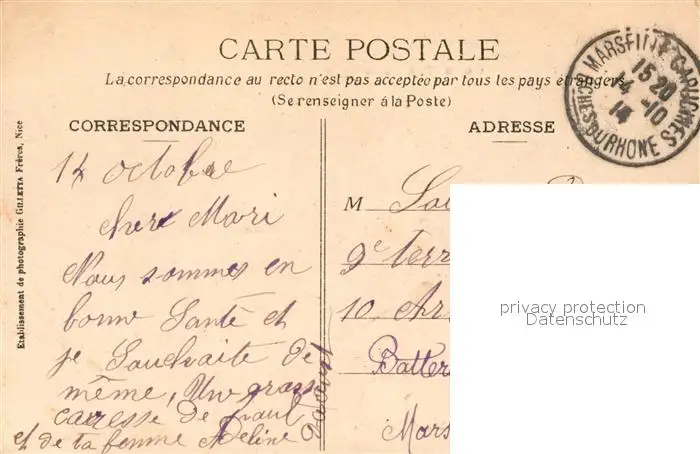 CARTE POSTALE
La correspondance au recto n'est pas acceptée par tous les pays étrangers
(Se renseigner à la Poste)
CORRESPONDANCE
14 octobre
cher Mari
Nous sommes en
bonne Santé et
je Souhaite de
même, Une grosse
caresse de Paul
et de ta femme Adeline
ADRESSE
M
9e Terr
10 Ar
Batter
Mars
MARSEILLE CAPUCINES
15 20
14 - 10
14
BCHES DU RHONE
Etablissement de photographie GILLETTA Frères, Nice
privacy protection
Datenschutz